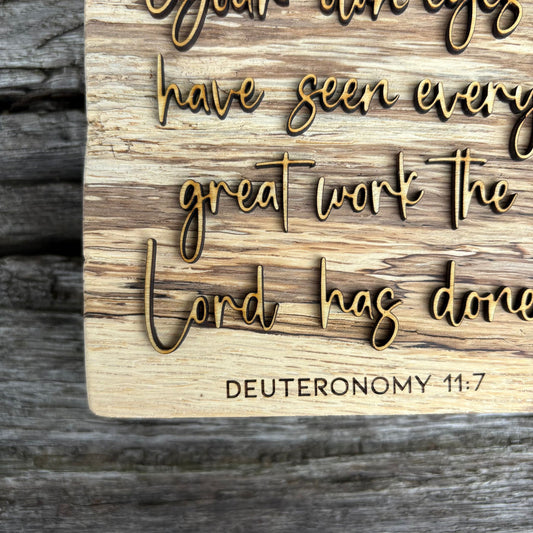 Your own eyes
have seen every
great work the
Lord has done
DEUTERONOMY 11:7